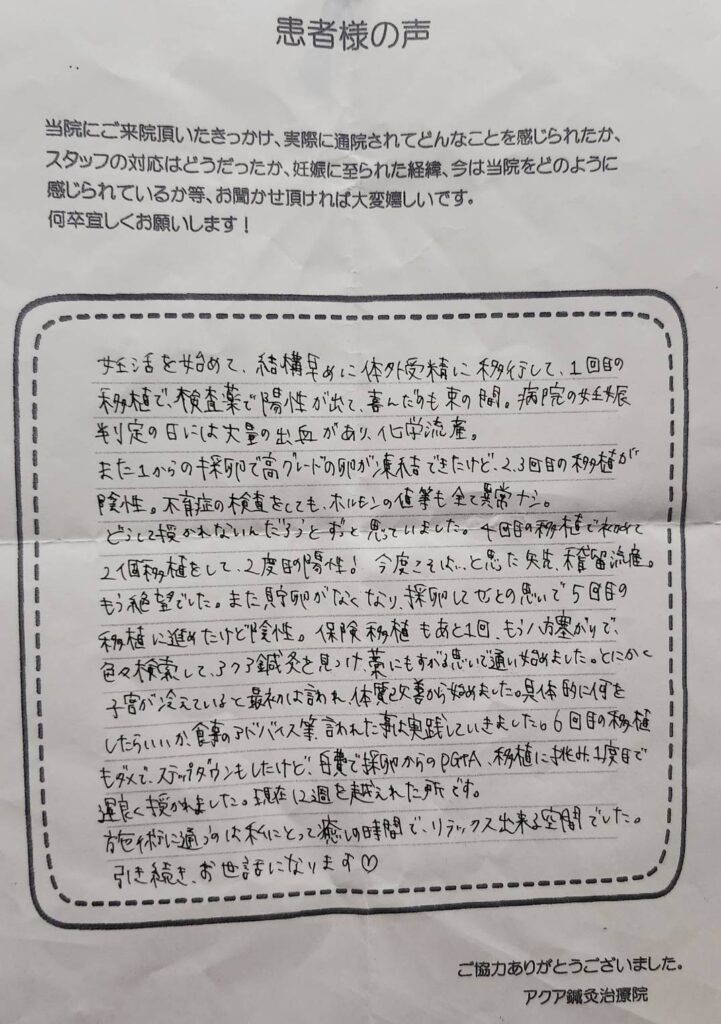 患者様の声
当院にご来院頂いたきっかけ、実際に通院されてどんなことを感じられたか、
スタッフの対応はどうだったか、妊娠に至られた経緯、今は当院をどのように
感じられているか等、お聞かせ頂ければ大変嬉しいです。
何卒宜しくお願いします！
妊活を始めて、結構早めに体外受精に移行して、1回目の
移植で、検査薬で陽性が出て、喜んだのも束の間。病院の妊娠
判定の日には大量の出血があり、化学流産。
また1からの採卵で高グレードの卵が凍結できたけど、2.3回目の移植が
陰性。不育症の検査をしても、ホルモンの値等も全て異常ナシ。
どうして授かれないんだろうとずっと思っていました。4回目の移植で初めて
2個移植をして、2度目の陽性！ 今度こそは…と思った矢先、稽留流産。
もう絶望でした。また貯卵がなくなり、採卵してやっとの思いで5回目の
移植に進めたけど陰性。保険移植もあと1回、もう八方塞がりで、
色々検索して、アクア鍼灸を見つけ、藁にもすがる思いで通い始めました。とにかく
子宮が冷えていると最初は言われ、体質改善から始めました。具体的に何を
したらいいか、食事のアドバイス等、言われた事は実践していきました。6回目の移植
もダメで、ステップダウンもしたけど、自費で採卵からのPGTA、移植に挑み、1度目で
運良く授かれました。現在12週を越えれた所です。
施術に通うのは私にとって癒しの時間で、リラックス出来る空間でした。
引き続き、お世話になります♡
ご協力ありがとうございました。
アクア鍼灸治療院